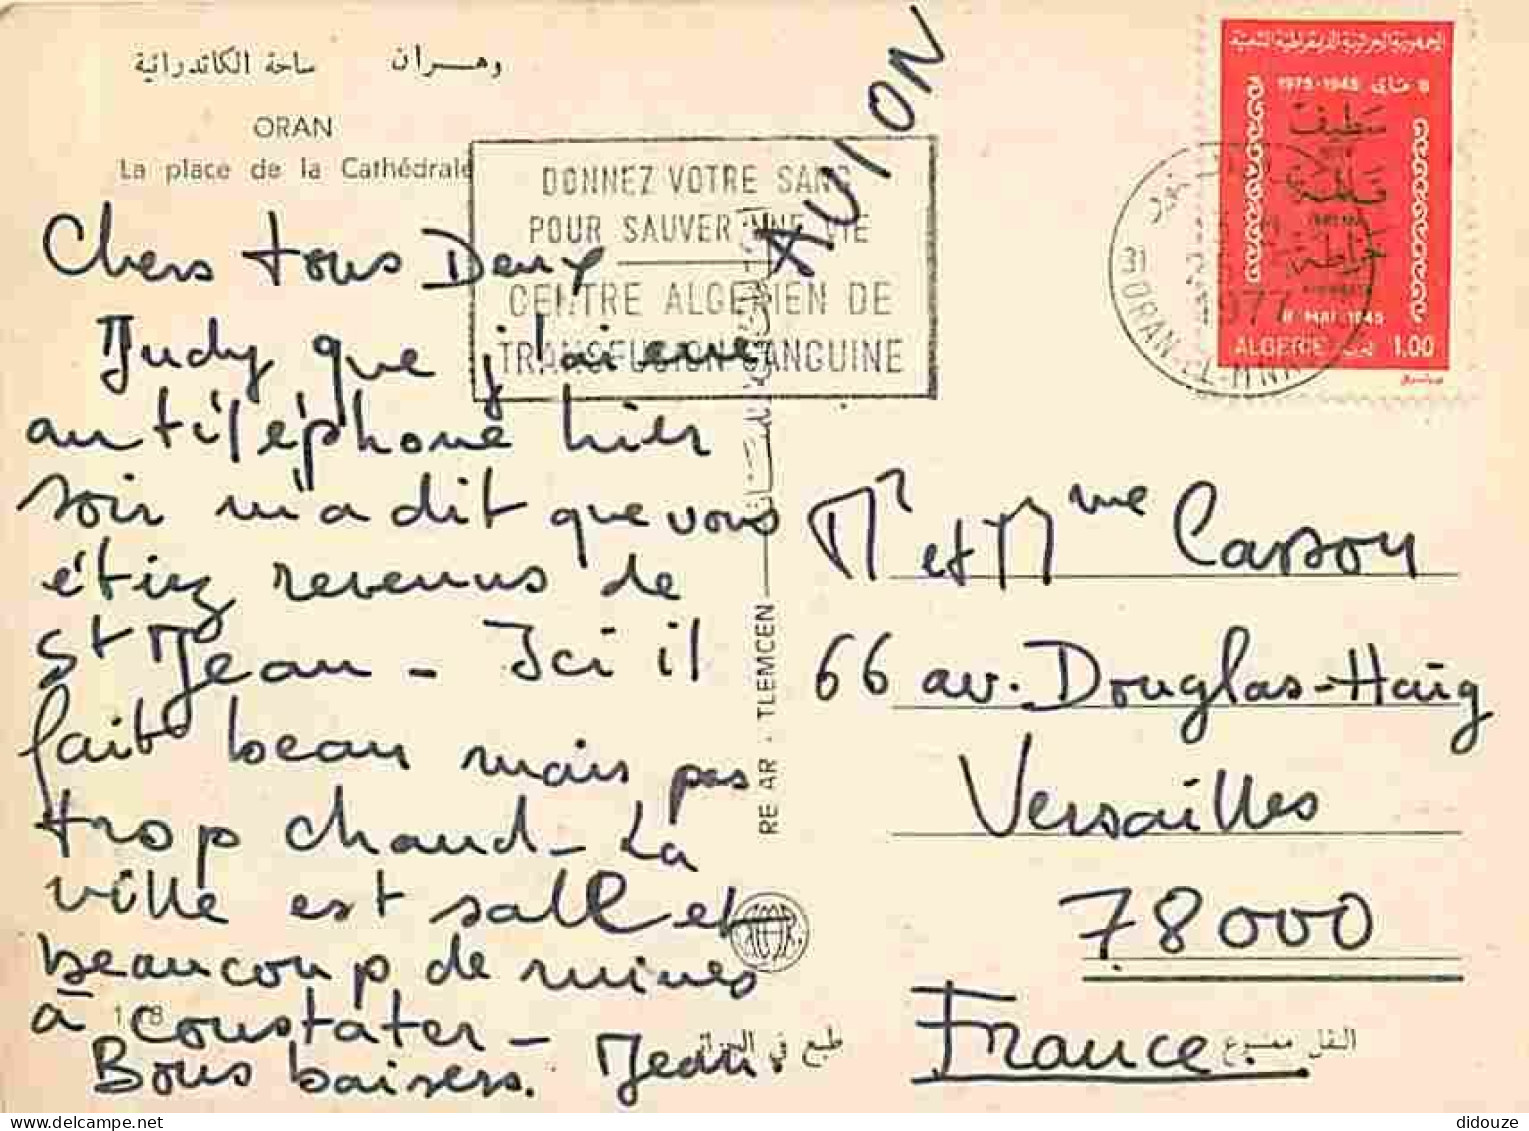 وهـران ساحة الكاتدرائية
ORAN
La place de la Cathédrale
AVION
DONNEZ VOTRE SANG
POUR SAUVER UNE VIE
CENTRE ALGERIEN DE
TRANSFUSION SANGUINE
الجمهورية الجزائرية الديمقراطية الشعبية
8 ماي 1945-1975
سطيف
قالمة
خراطة
8 MAI 1945
ALGERIE 1.00
31 ORAN-EL-MNA
1977
Chers tous Deux
Judy que j'ai eue
au téléphone hier
soir m'a dit que vous
étiez revenus de
St Jean - Ici il
fait beau mais pas
trop chaud - La
ville est sale et
beaucoup de ruines
à constater -
Bons baisers. Jean.
Mr et Mme Casson
66 av. Douglas-Haig
Versailles
78000
France
RE AR - TLEMCEN
طبع في الجزائر
النقل ممنوع
didouze